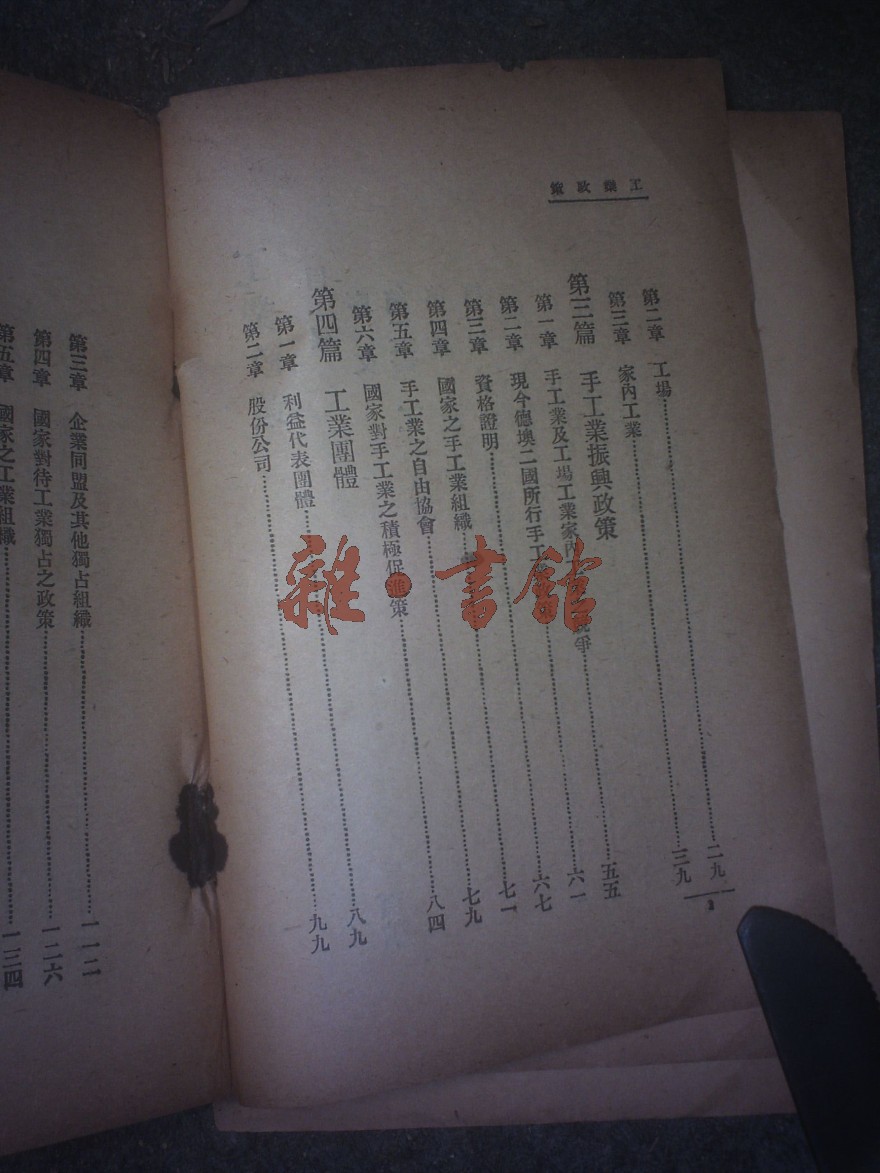 工業政策
第二章 工場……二九
第三章 家內工業……三九
第三篇 手工業振興政策
第一章 手工業及工場工業家內 爭……五五
第二章 現今德墺二國所行手工……六一
第三章 資格證明……六七
第四章 國家之手工業組織……七一
第五章 手工業之自由協會……七九
第六章 國家對手工業之積極促進策……八四
第四篇 工業團體
第一章 利益代表團體……八九
第二章 股份公司……九九
第三章 企業同盟及其他獨占組織……一一二
第四章 國家對待工業獨占之政策……一二六
第五章 國家之工業組織……一三四
雜·書館